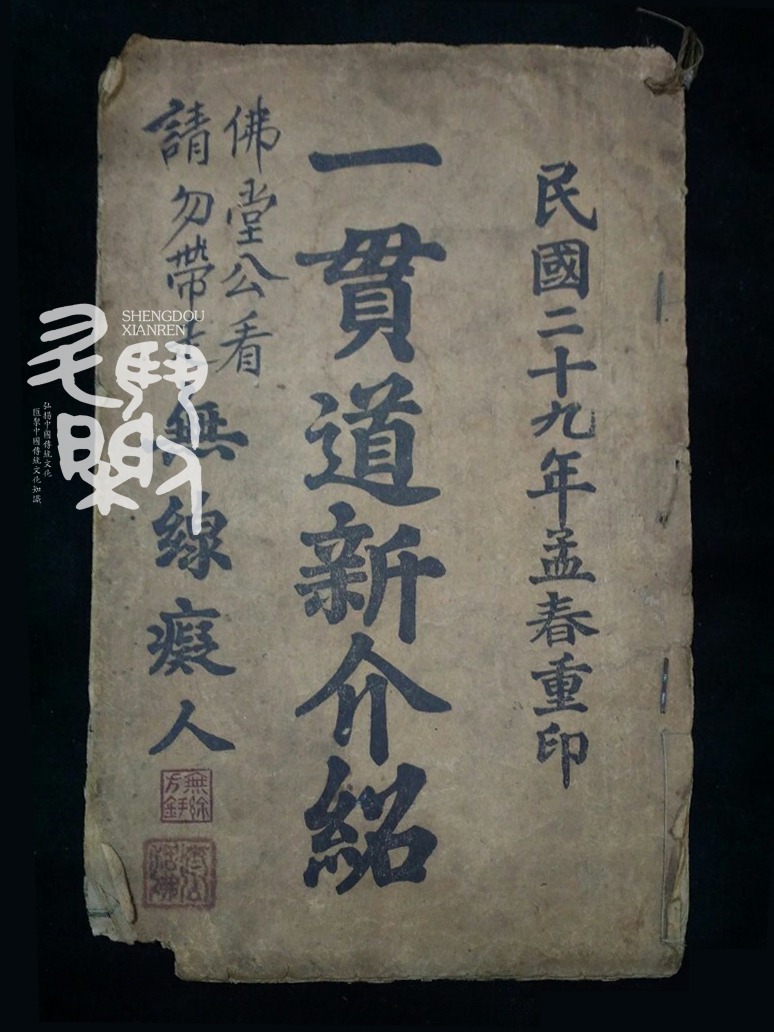 民國二十九年孟春重印
一貫道新介紹
佛堂公看
請勿帶
無線癡人
SHENGDOU
XIANREN
弘揚中國傳統文化
匯聚中國傳統文化知識